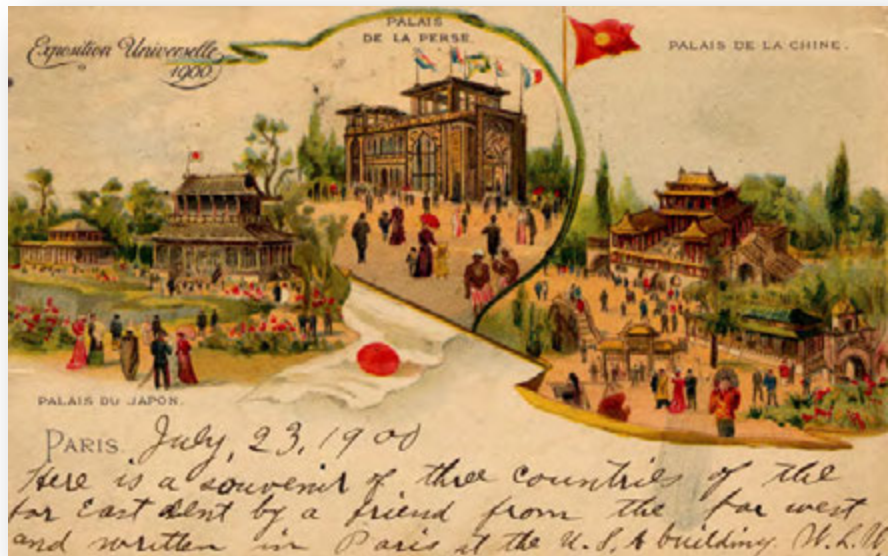 Exposition Universelle
1900
PALAIS
DE LA PERSE.
PALAIS DE LA CHINE.
PALAIS DU JAPON.
PARIS July, 23, 1900
Here is a souvenir of three countries of the
far East sent by a friend from the far west
and written in Paris at the U.S.A building. W.L.W